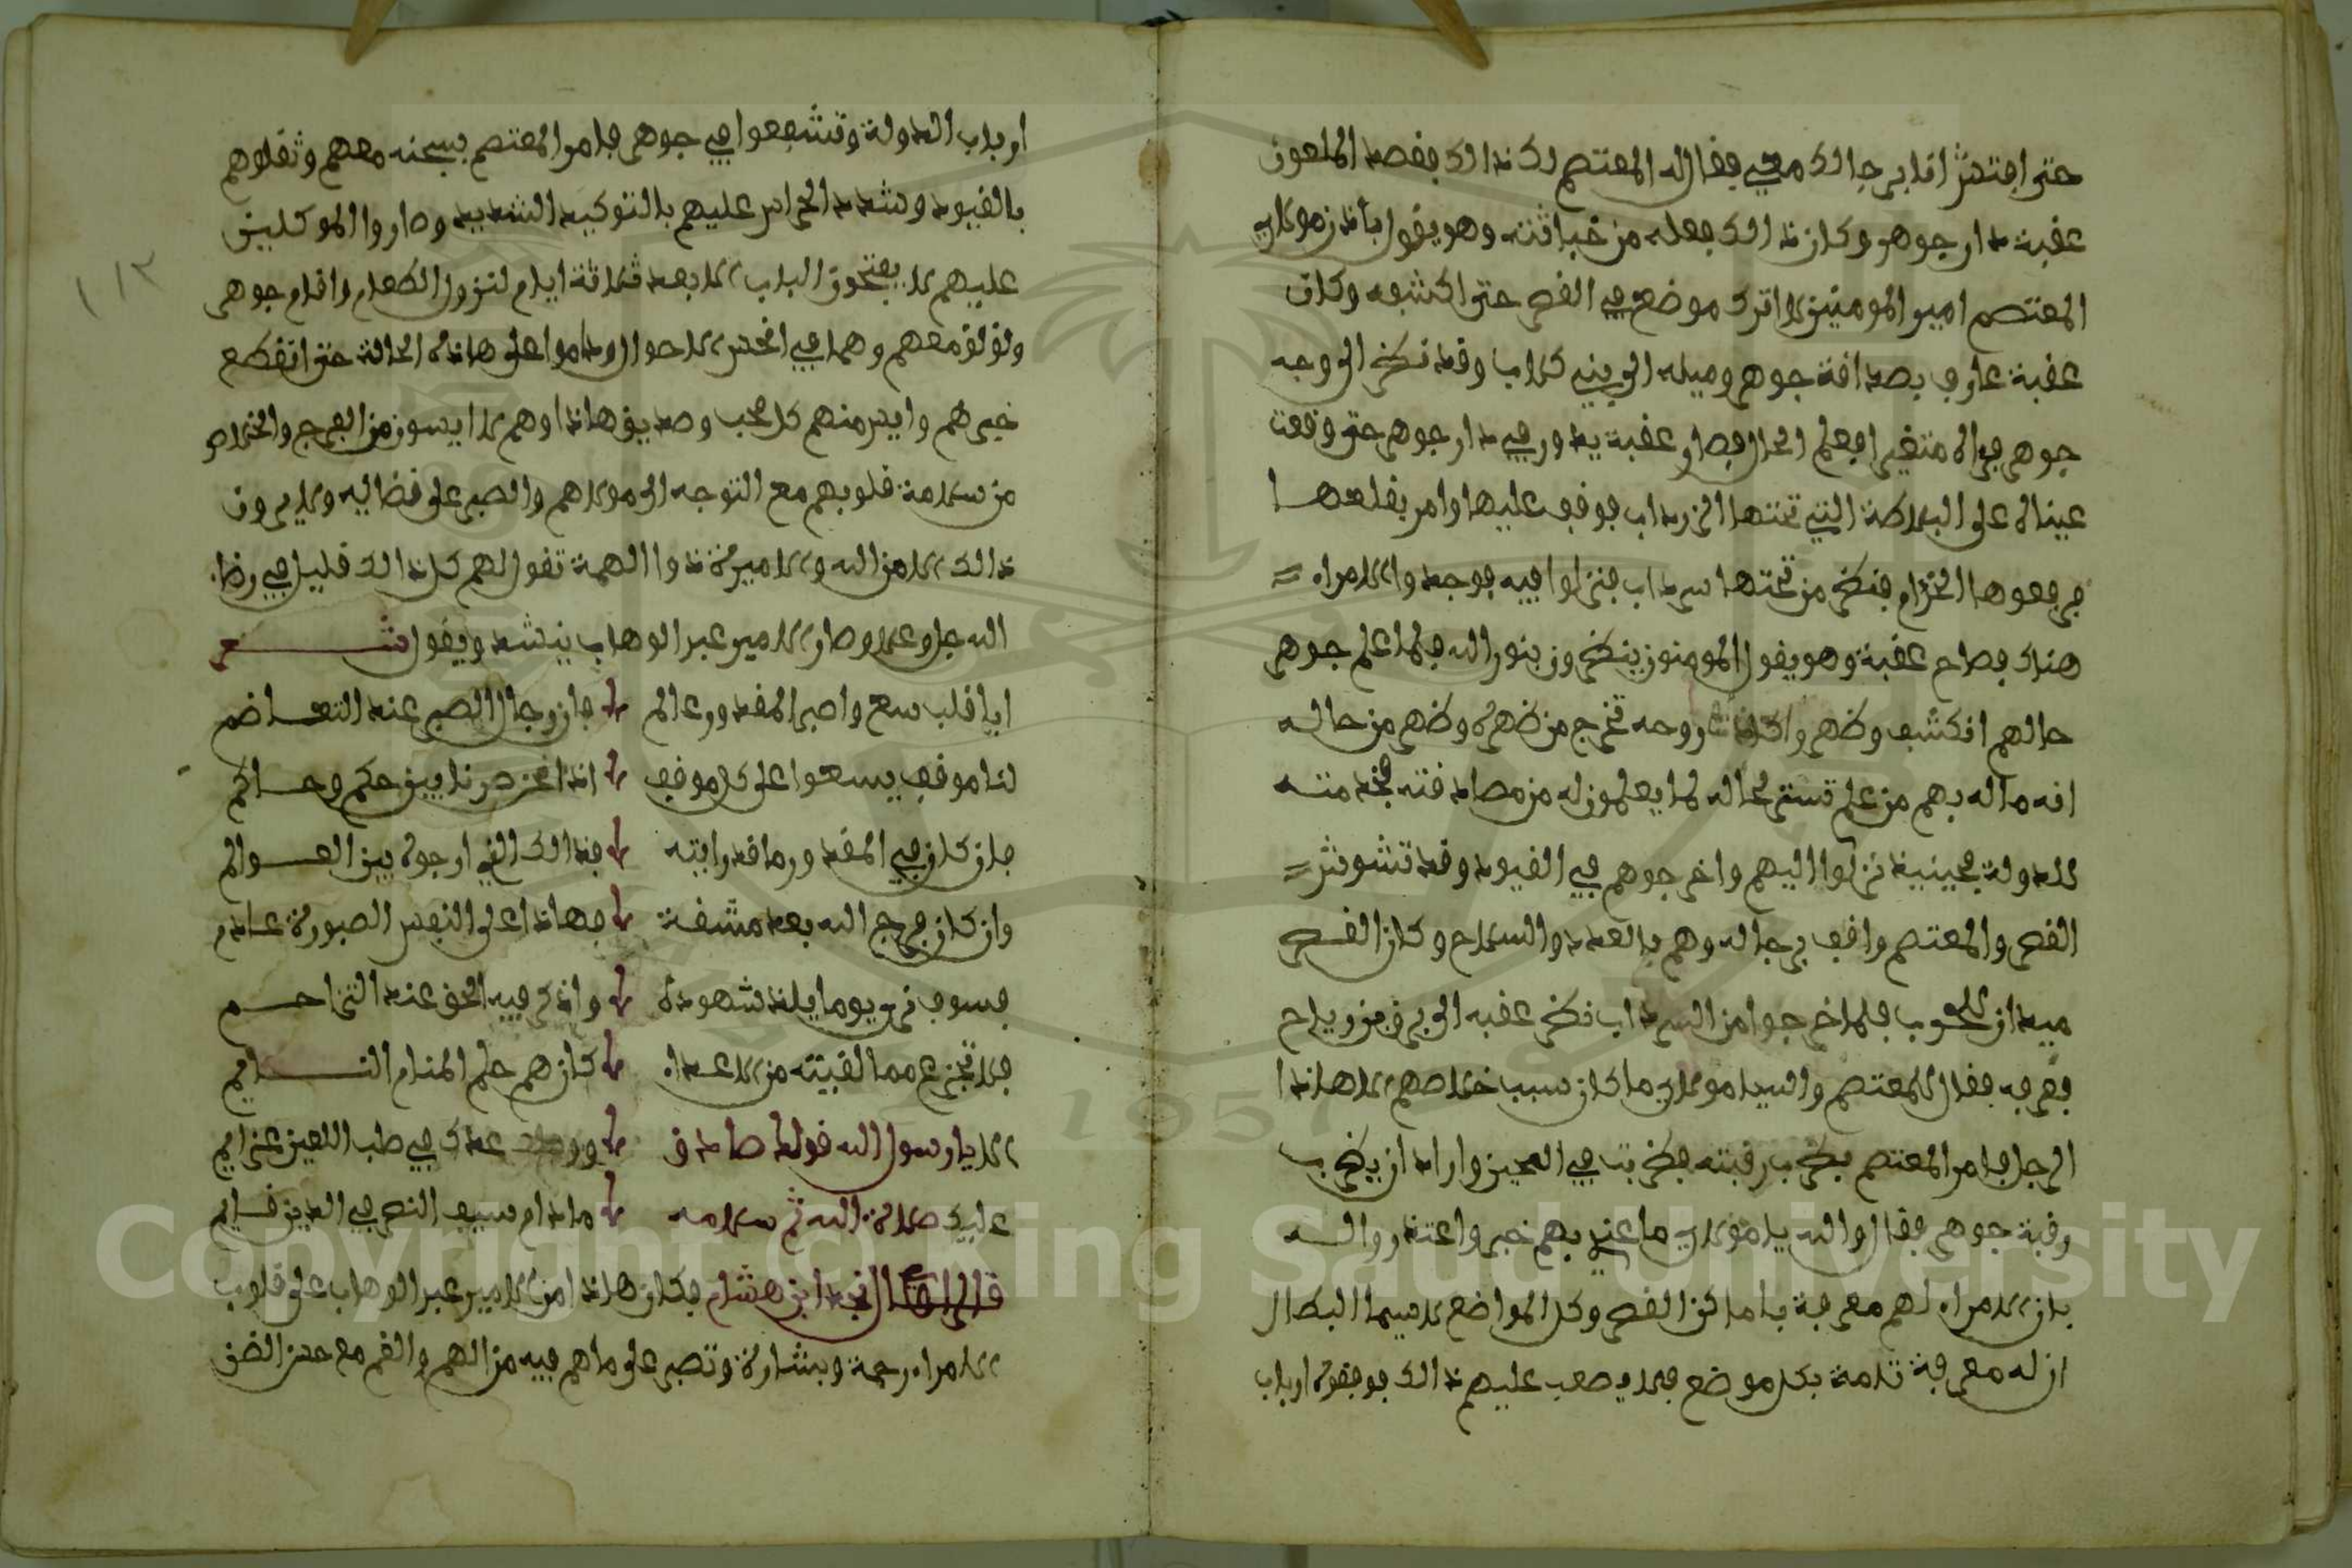 حتى افتش انا برجالك معي فقال له المعتصم لك ذالك فقصد الملعون
عقبة دار جوهر وكان ذالك فعله من خباثته وهو يقول بأذن مولاي
المعتصم امير المومنين لا اترك موضع في القصر حتى اكشفه وكان
عقبة عارف بصداقة جوهر وميله الى بني كلاب وقد نظر الى وجه
جوهر فراه متغير افعلم الحال فصار عقبة يدور في دار جوهر حتى وقعت
عيناه على البلاطة التي تحتها السرداب فوقف عليها وامر بقلعها
فرفعوها الخدام فنظر من تحتها سرداب فنزلوا فيه فوجدوا الامراء
هناك فصاح عقبة وهو يقول المومنون ينظرون بنور الله فلما علم جوهر
حالهم انكشف وظهر وكادت روحه تخرج من ظهره وظهر من حاله
انه ماله بهم من علم تستر لحاله لما يعلمون له من مصادقته فخذ منه
للدولة فحينيذ نزلوا اليهم واخرجوهم في القيود وقد تشوش
القصر والمعتصم واقف برجاله وهم بالعدد والسلاح وكان القصر
ميدان للحرب فلما خرجوا من السرداب نظر عقبه الى برقي وزويلح
فعرفه فقال للمعتصم والسيد مولاي ما كان سبب خلاصهم الا هاذا
الرجل فامر المعتصم بضرب رقبته فضربت في الحين واراد ان يضرب
رقبة جوهر فقال والله يا مولاي ما عندي بهم خبر واعتذروا له
بان الامراء لهم معرفة باماكن القصر وكل المواضع لاسيما البطال
ان له معرفة تامة بكل موضع فلا يصعب عليهم ذالك فوقفوه ارباب
ارباب الدولة وتشفعوا في جوهر فامر المعتصم بسجنه معهم وثقلوهم
بالقيود وشدد الحراس عليهم بالتوكيد الشديد وصاروا الموكلين
عليهم لا يفتحون الباب الا بعد ثلاثة ايام لنزول الطعام واقام جوهر
ولولو معهم وهما في انحس الاحوال وداموا على هاذه الحالة حتى انقطع
خبرهم وايس منهم كل محب وصديق هاذا وهم لا ايسون من الفرج والخلاص
من سلامة قلوبهم مع التوجه الى مولاهم والصبر على قضاايه ولا يرون
ذالك الا من الله والاميرة ذوا الهمة تقول لهم كل ذالك قليل في رضاء
الله جل وعلا وصار الامير عبد الوهاب ينشد ويقول شعر
ايا قلب سع واصبر المقدور عالم فان وجال الصبر عند التعاضم
لنا موقف يسعوا على كل موقف اذا اغز صرنا بين حكم وحاكم
فان كان في المقدور ما قد رايته فذالك الذي ارجوه بين العوالم
وان كان فرج الله بعد مشقة فهاذا على النفس الصبورة عادم
فسوف نرى يوما يلذ شهوده واذكر فيه الحق عند التزاحم
فلا تجزع مما لقيته من الاعداء كان هم حلم المنام النايم
الا يا رسول الله قولك صادق ووعدك في طب اللعين عزايم
عليك صلاة الله ثم سلامه ما دام سيف النصر في الدين قايم
قال الراوي نجد ابن هشام فكان هاذا من الامير عبد الوهاب على قلوب
الامراء رحمة وبشارة وتصبر على ما هم فيه من الهم والغم مع حسن الضن
١١٣
Copyright © King Saud University
1957